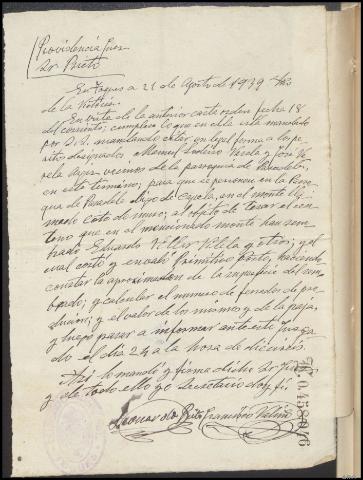 Providencia Juez
Sr Prieto
En Toques a 21 de Agosto de 1939 Año
de la Victoria.
En vista de la anterior carta orden fecha 18
del corriente; cumplase lo que en ella está mandado
por S.S. mandando citar, en legal forma a los pe
ritos designados, Manuel
vecinos de la parroquia de
en este término; para que se personen en la Parro
quia de Paradela Lugar de Capela, en el monte lla
mado Coto de muro; al objeto de tasar el cen
teno que en el mencionado monte han sem
brado Eduardo Villar Villa y otros; y el
cual cortó y Primitivo haciendo
constar la aproximación de la superficie del sem
brado; y calcular el numero de ferrados de pro
ducion; y el valor de los mismos y de la paja,
y luego pasar a informar ante este Juzga
do el dia 24 a la hora de dieciseis.
Asi lo mandó y firma dicho Sr Juez
y de todo ello yo Secretario doy fé
Leonardo Prieto Francisco